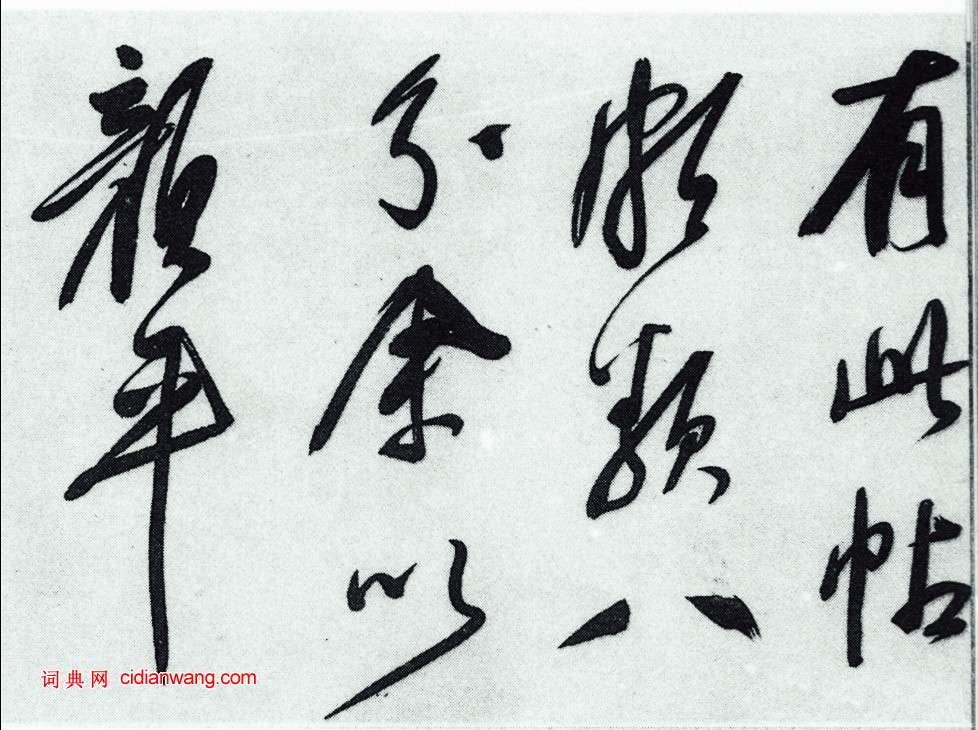 有此帖
頗類八
分余以
顏平
词典网 cidianwang.com